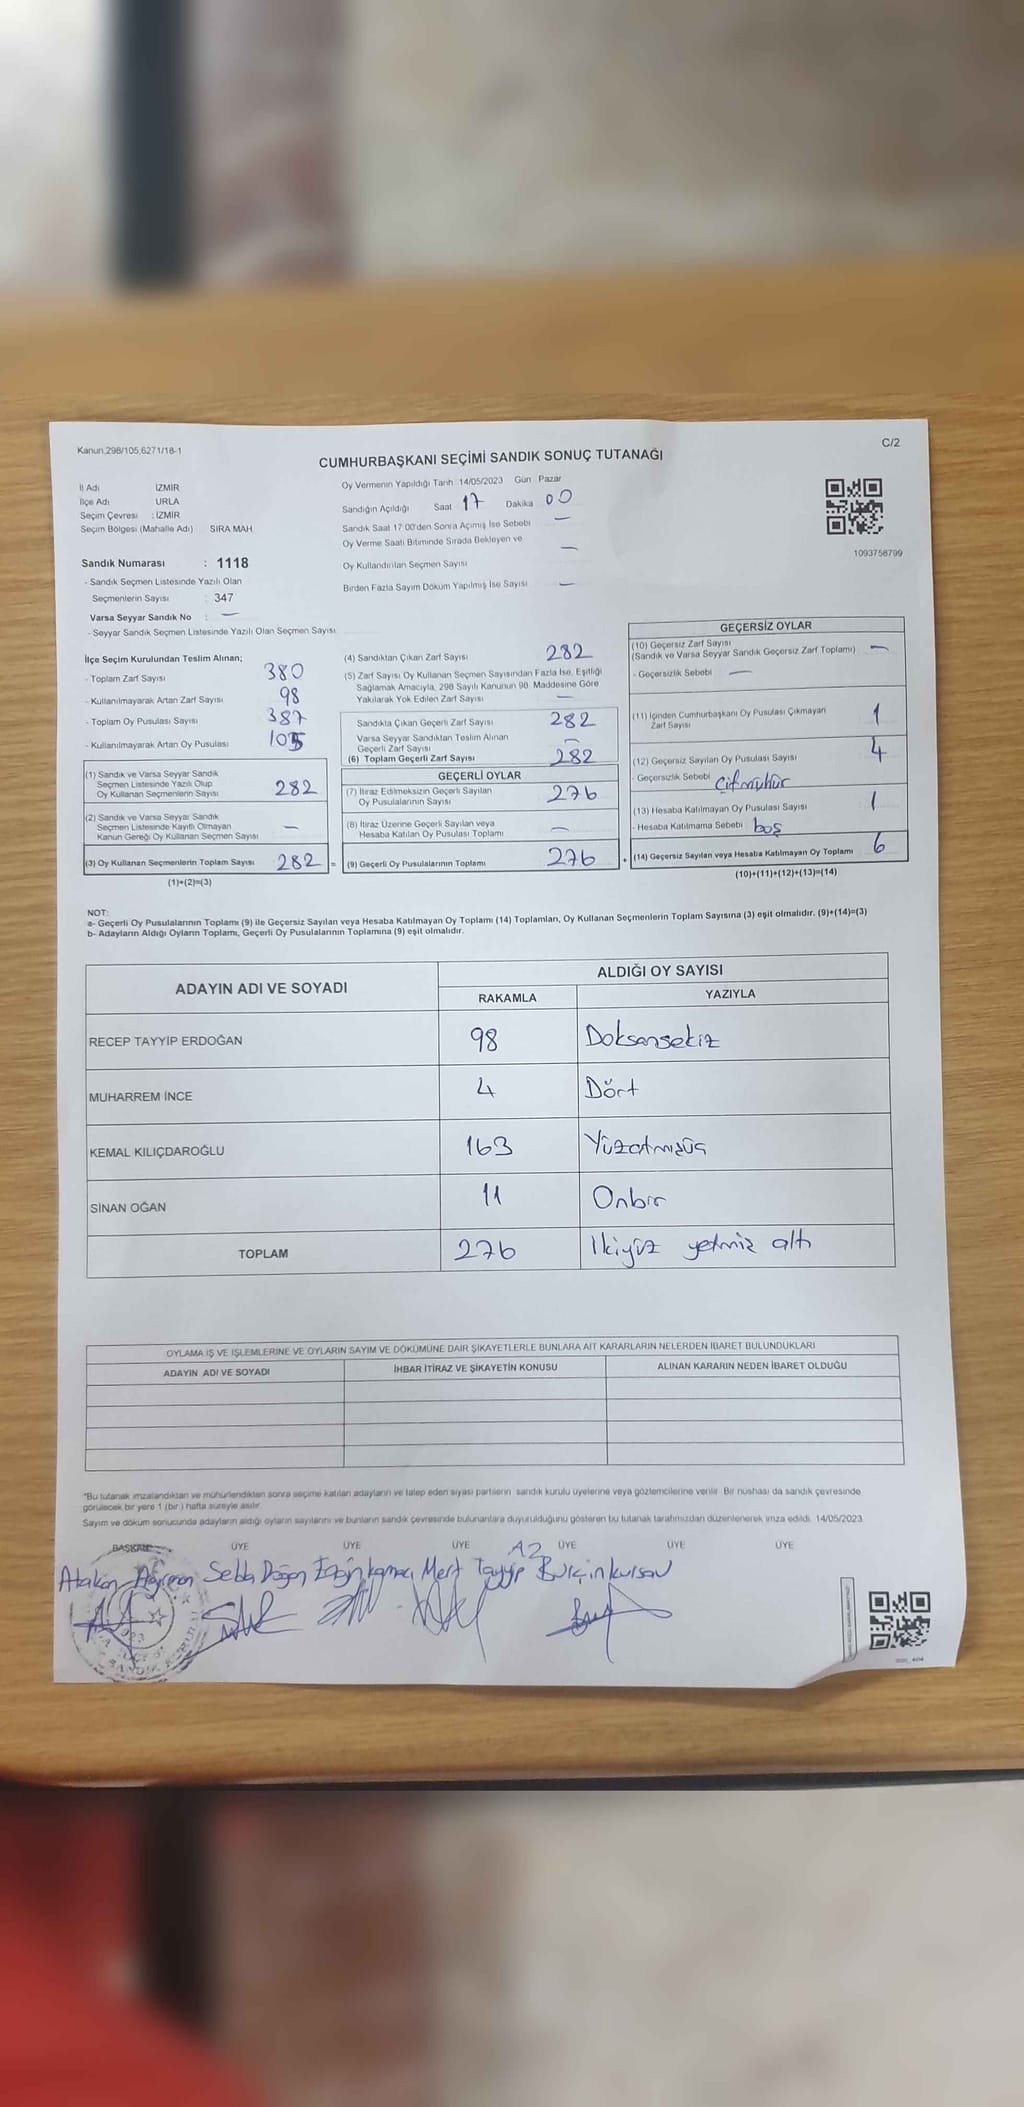 Kanun,298/105,6271/18-1
C/2
CUMHURBAŞKANI SEÇİMİ SANDIK SONUÇ TUTANAĞI
İl Adı İZMİR
İlçe Adı URLA
Seçim Çevresi : İZMİR
Seçim Bölgesi (Mahalle Adı) SIRA MAH.
Oy Vermenin Yapıldığı Tarih 14/05/2023 Gün Pazar
Sandığın Açıldığı Saat 17 Dakika 00
Sandık Saat 17:00'den Sonra Açımış İse Sebebi —
Oy Verme Saati Bitiminde Sırada Bekleyen ve
Oy Kullandırılan Seçmen Sayısı —
Birden Fazla Sayım Döküm Yapılmış İse Sayısı —
1093756799
Sandık Numarası : 1118
- Sandık Seçmen Listesinde Yazılı Olan
Seçmenlerin Sayısı : 347
Varsa Seyyar Sandık No : —
- Seyyar Sandık Seçmen Listesinde Yazılı Olan Seçmen Sayısı
İlçe Seçim Kurulundan Teslim Alınan;
- Toplam Zarf Sayısı 380
- Kullanılmayarak Artan Zarf Sayısı 98
- Toplam Oy Pusulası Sayısı 387
- Kullanılmayarak Artan Oy Pusulası 105
(1) Sandık ve Varsa Seyyar Sandık
Seçmen Listesinde Yazılı Olup
Oy Kullanan Seçmenlerin Sayısı 282
(2) Sandık ve Varsa Seyyar Sandık
Seçmen Listesinde Kayıtlı Olmayan
Kanun Gereği Oy Kullanan Seçmen Sayısı —
(3) Oy Kullanan Seçmenlerin Toplam Sayısı 282 =
(1)+(2)=(3)
(4) Sandıktan Çıkan Zarf Sayısı 282
(5) Zarf Sayısı Oy Kullanan Seçmen Sayısından Fazla İse, Eşitliği
Sağlamak Amacıyla, 298 Sayılı Kanunun 98. Maddesine Göre
Yakılarak Yok Edilen Zarf Sayısı —
Sandıkta Çıkan Geçerli Zarf Sayısı 282
Varsa Seyyar Sandıktan Teslim Alınan
Geçerli Zarf Sayısı —
(6) Toplam Geçerli Zarf Sayısı 282
GEÇERLİ OYLAR
(7) İtiraz Edilmeksizin Geçerli Sayılan
Oy Pusulalarının Sayısı 276
(8) İtiraz Üzerine Geçerli Sayılan veya
Hesaba Katılan Oy Pusulası Toplamı —
(9) Geçerli Oy Pusulalarının Toplamı 276 +
GEÇERSİZ OYLAR
(10) Geçersiz Zarf Sayısı
(Sandık ve Varsa Seyyar Sandık Geçersiz Zarf Toplamı) —
- Geçersizlik Sebebi —
(11) İçinden Cumhurbaşkanı Oy Pusulası Çıkmayan
Zarf Sayısı 1
(12) Geçersiz Sayılan Oy Pusulası Sayısı 4
- Geçersizlik Sebebi Çift mühür
(13) Hesaba Katılmayan Oy Pusulası Sayısı 1
- Hesaba Katılmama Sebebi boş
(14) Geçersiz Sayılan veya Hesaba Katılmayan Oy Toplamı 6
(10)+(11)+(12)+(13)=(14)
NOT:
a- Geçerli Oy Pusulalarının Toplamı (9) ile Geçersiz Sayılan veya Hesaba Katılmayan Oy Toplamı (14) Toplamları, Oy Kullanan Seçmenlerin Toplam Sayısına (3) eşit olmalıdır. (9)+(14)=(3)
b- Adayların Aldığı Oyların Toplamı, Geçerli Oy Pusulalarının Toplamına (9) eşit olmalıdır.
ADAYIN ADI VE SOYADI ALDIĞI OY SAYISI
RAKAMLA YAZIYLA
RECEP TAYYİP ERDOĞAN 98 Doksansekiz
MUHARREM İNCE 4 Dört
KEMAL KILIÇDAROĞLU 163 Yüzatmışüç
SİNAN OĞAN 11 Onbir
TOPLAM 276 İkiyüz yetmiş altı
OYLAMA İŞ VE İŞLEMLERİNE VE OYLARIN SAYIM VE DÖKÜMÜNE DAİR ŞİKAYETLERLE BUNLARA AİT KARARLARIN NELERDEN İBARET BULUNDUKLARI
ADAYIN ADI VE SOYADI İHBAR İTİRAZ VE ŞİKAYETİN KONUSU ALINAN KARARIN NEDEN İBARET OLDUĞU
*Bu tutanak imzalandıktan ve mühürlendikten sonra seçime katılan adayların ve talep eden siyasi partilerin sandık kurulu üyelerine veya gözlemcilerine verilir. Bir nüshası da sandık çevresinde
görülecek bir yere 1 (bir) hafta süreyle asılır.
Sayım ve döküm sonucunda adayların aldığı oyların sayılarını ve bunların sandık çevresinde bulunanlara duyurulduğunu gösteren bu tutanak tarafımızdan düzenlenerek imza edildi. 14/05/2023
BAŞKAN ÜYE ÜYE ÜYE ÜYE ÜYE ÜYE
Seda Doğan Mert Tayyip